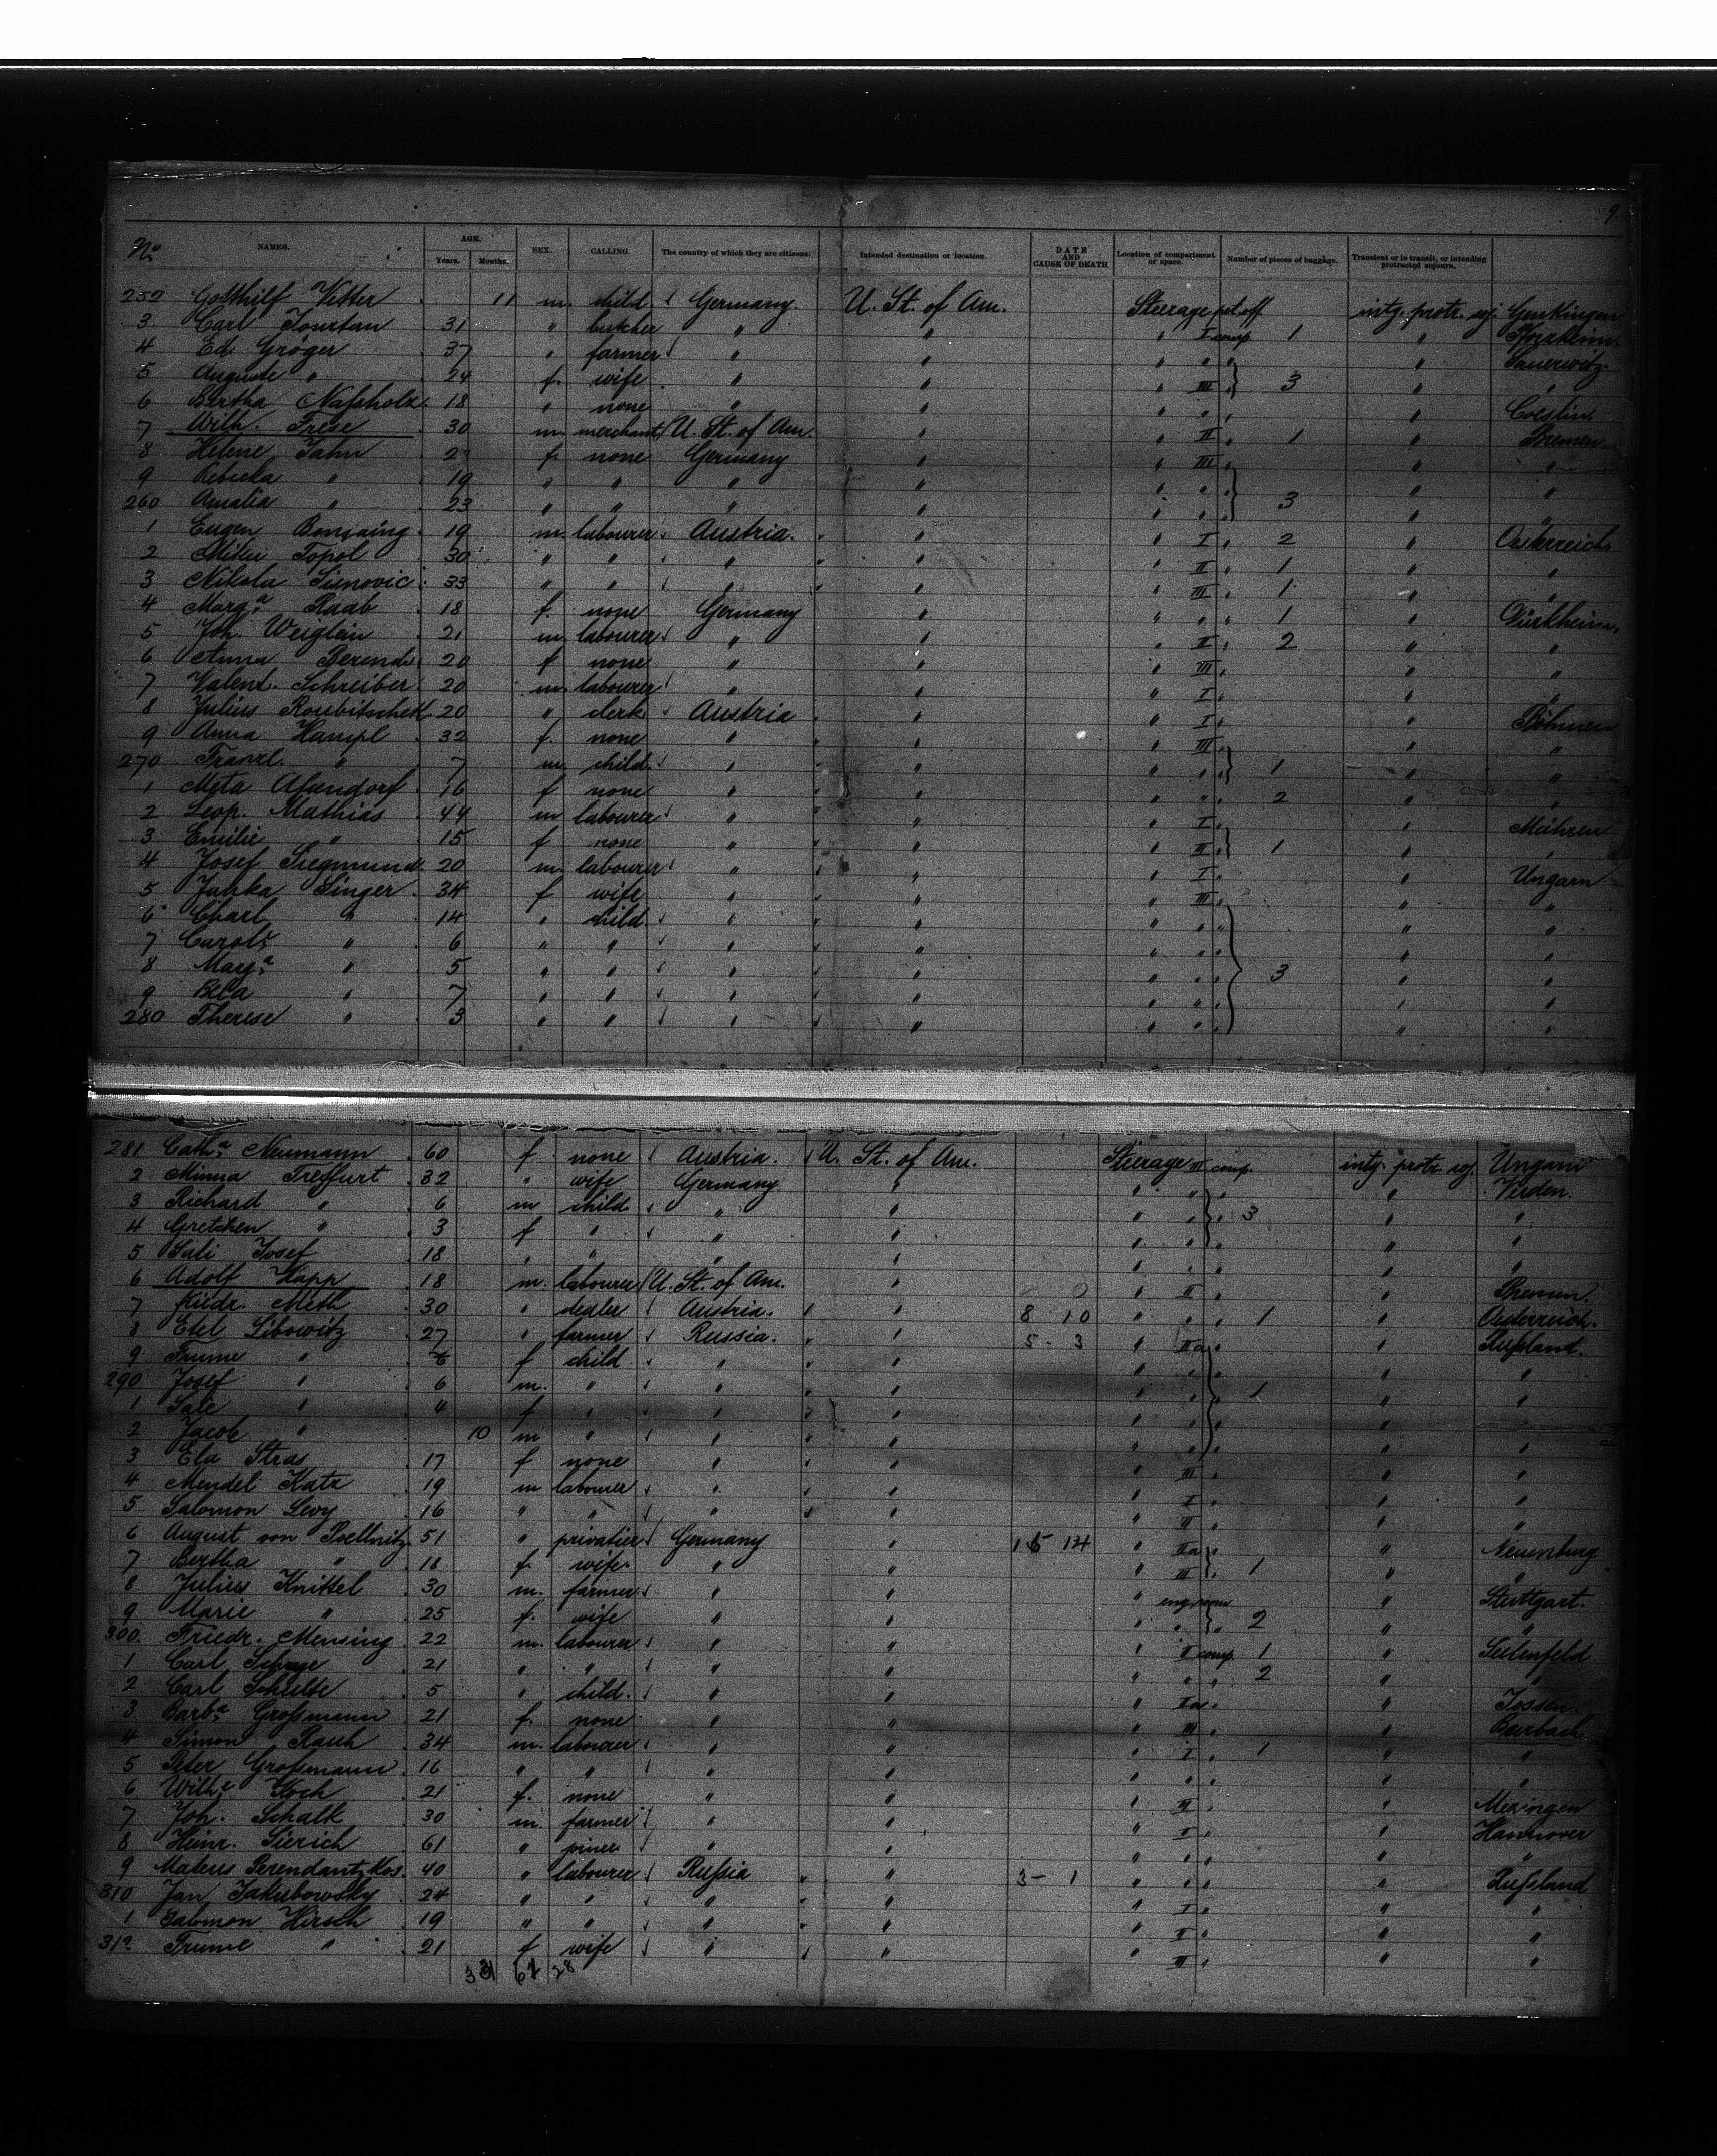 9
No NAMES. AGE. Years. Months. SEX. CALLING. The country of which they are citizens. Intended destination or location. DATE AND CAUSE OF DEATH Location of compartment or space. Number of pieces of baggage. Transient or in transit, or intending protracted sojourn.
252 Gotthilf Vetter 11 m. child Germany U. St. of Am. Steerage intg. protr. soj. Genkingen
3 Carl 31 " butcher " " " I comp. 1 " Pforzheim
4 Ed. Gröger 37 " farmer " " " " " "
5 Auguste " 24 f. wife " " " III " 3 " "
6 Bertha Naßholz 18 " none " " " " " " Coeslin
7 Wilh. Frese 30 m. merchant U. St. of Am. " " II " 1 " Bremen
8 Helene Jahn f. none Germany " " III " " "
9 Rebecka " 19 " " " " " " " " "
260 Amalia " 23 " " " " " " " 3 " "
1 Eugen 19 m. labourer Austria. " " I " 2 " Oesterreich
2 Topol 30 " " " " " II " 1 " "
3 Nikola 33 " " " " " III " 1 " "
4 Marga. Raab 18 f. none Germany " " " " 1 " Dürkheim
5 Joh. Weiglein 21 m. labourer " " " II " 2 " "
6 Anna Berends 20 f. none " " " III " " "
7 Valent. Schreiber 20 m. labourer " " " I " " "
8 Julius Roubitschek 20 " clerk Austria " " I " " Böhmen
9 Anna Hampl 32 f. none " " " III " " "
270 Franzl. " 7 m. child " " " " " 1 " "
1 Meta 16 f none " " " " " 2 " "
2 Leop. Mathias 44 m labourer " " " I " " Mähren
3 Emilie " 15 f none " " " III " 1 " "
4 Josef Siegmund 20 m. labourer " " " I " " Ungarn
5 Singer 34 f wife " " " III " " "
6 Charl. " 14 " child " " " " " " "
7 Carole. " 6 " " " " " " " " "
8 Marga. " 5 " " " " " " " 3 " "
9 Bela " 7 " " " " " " " " "
280 Therese " 3 " " " " " " " " "
281 Catha. Neumann 60 f. none Austria. U. St. of Am. Steerage III comp. intg. protr. soj. Ungarn
2 Minna Treffurt 32 " wife Germany " " " " " Verden.
3 Richard " 6 m child " " " " " 3 " "
4 Gretchen " 3 f " " " " " " " "
5 Sali Josef 18 " " " " " " " " "
6 Adolf Kapp 18 m. labourer U. St. of Am. " " II " " Bremen.
7 Friedr. Meth 30 " dealer Austria. " 8 10 " " " 1 " Oesterreich.
8 Etel Libowitz 27 " farmer Russia. " 5 - 3 " IIa " " Rußland.
9 Frume " 6 f child " " " " " " "
290 Josef " 6 m. " " " " " " 1 " "
1 Sale " 4 f " " " " " " " "
2 Jacob " 10 m " " " " " " " "
3 Ela Stras 17 f none " " " III " " "
4 Mendel Katz 19 m labourer " " " I " " "
5 Salomon Levy 16 " " " " " II " " "
6 August von Poellnitz 51 " privatier Germany " 15 14 " IIa " " Neuenburg.
7 Bertha " 18 f. wife " " " III " 1 " "
8 Julius Knittel 30 m. farmer " " " " Stuttgart.
9 Marie " 25 f. wife " " " " 2 " "
300. Friedr. Mensing 22 m. labourer " " " II comp. 1 "
1 Carl 21 " " " " " " " 2 " "
2 Carl Schulte 5 " child. " " " Ia " "
3 Barba. Großmann 21 f. none " " " III " " Burbach
4 Simon Rauh 34 m. labourer " " " I " 1 " "
5 Peter Großmann 16 " " " " " " " " "
6 Wilhe. Koch 21 f. none " " " III " " Mezingen
7 Joh. Schalk 30 m. farmer " " " I " " Hannover
8 Heinr. Sierich 61 " " " " " " " "
9 Mateus 40 " labourer Rußia " 3 - 1 " " " " Rußland
310 Jan Jakubowsky 24 " " " " " I " " "
1 Salomon Hirsch 19 " " " " " II " " "
312 Frume " 21 f wife " " " III " " "
28